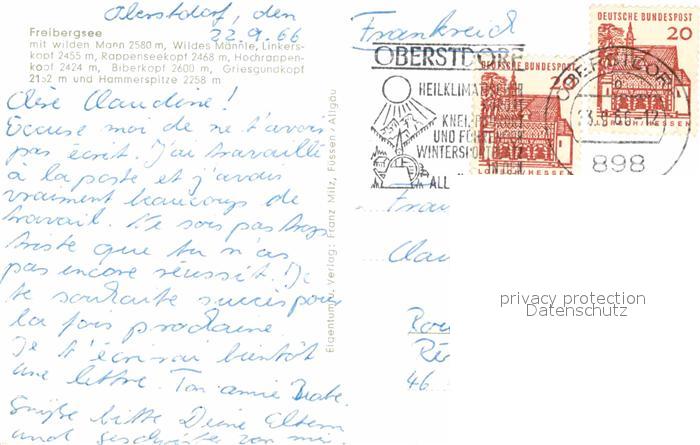 Oberstdorf, den
22.9.66
Freibergsee
mit wilden Mann 2580 m, Wildes Männle, Linkers-
kopf 2455 m, Rappenseekopf 2468 m, Hochrappen-
kopf 2424 m, Biberkopf 2600 m, Griesgundkopf
2152 m und Hammerspitze 2258 m
Chère Claudine!
Excuse moi de ne t'avoir
pas écrit. J'ai travaillé
à la poste et j'avais
vraiment beaucoup de
travail. Ne sois pas trop
triste que tu n'as
pas encore réussit. Je
te souhaite succès pour
la fois prochaine
Je t'écrirai bientôt
une lettre. Ton amie Beate.
Grüße bitte Deine Eltern
und Geschwister von mir
Eigentum u. Verlag: Franz Milz, Füssen/Allgäu
Frankreich
OBERSTDORF
HEILKLIMATISCHER
KURORT
KNEIPP
UND
WINTERSPORT
ALL
DEUTSCHE BUNDESPOST
20
LORSCH/HESSEN
DEUTSCHE BUNDESPOST
20
OBERSTDORF
23.9.66-12
898
Frau
Clau
46
privacy protection
Datenschutz